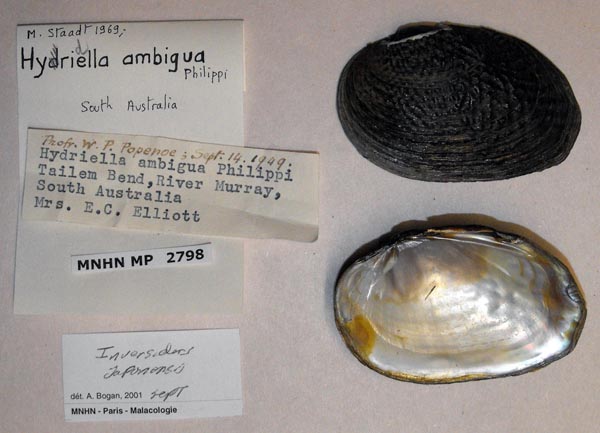 M. Staadt 1969;
Hydriella ambigua
Philippi
South Australia
Profr. W. P. Popenoe; Sept. 14. 1949.
Hydriella ambigua Philippi
Tailem Bend, River Murray,
South Australia
Mrs. E.C. Elliott
MNHN MP 2798
Inversidens
Japonensis
dét. A. Bogan, 2001 Sept
MNHN - Paris - Malacologie